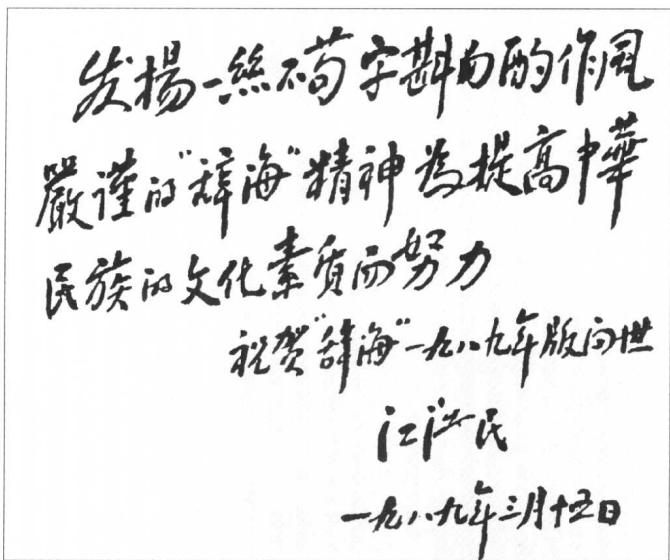 发揚一絲不苟字斟句酌作風
嚴谨的"辞海"精神為提高中華
民族的文化素质而努力
祝贺"辞海"一九八九年版问世
江泽民
一九八九年三月十五日